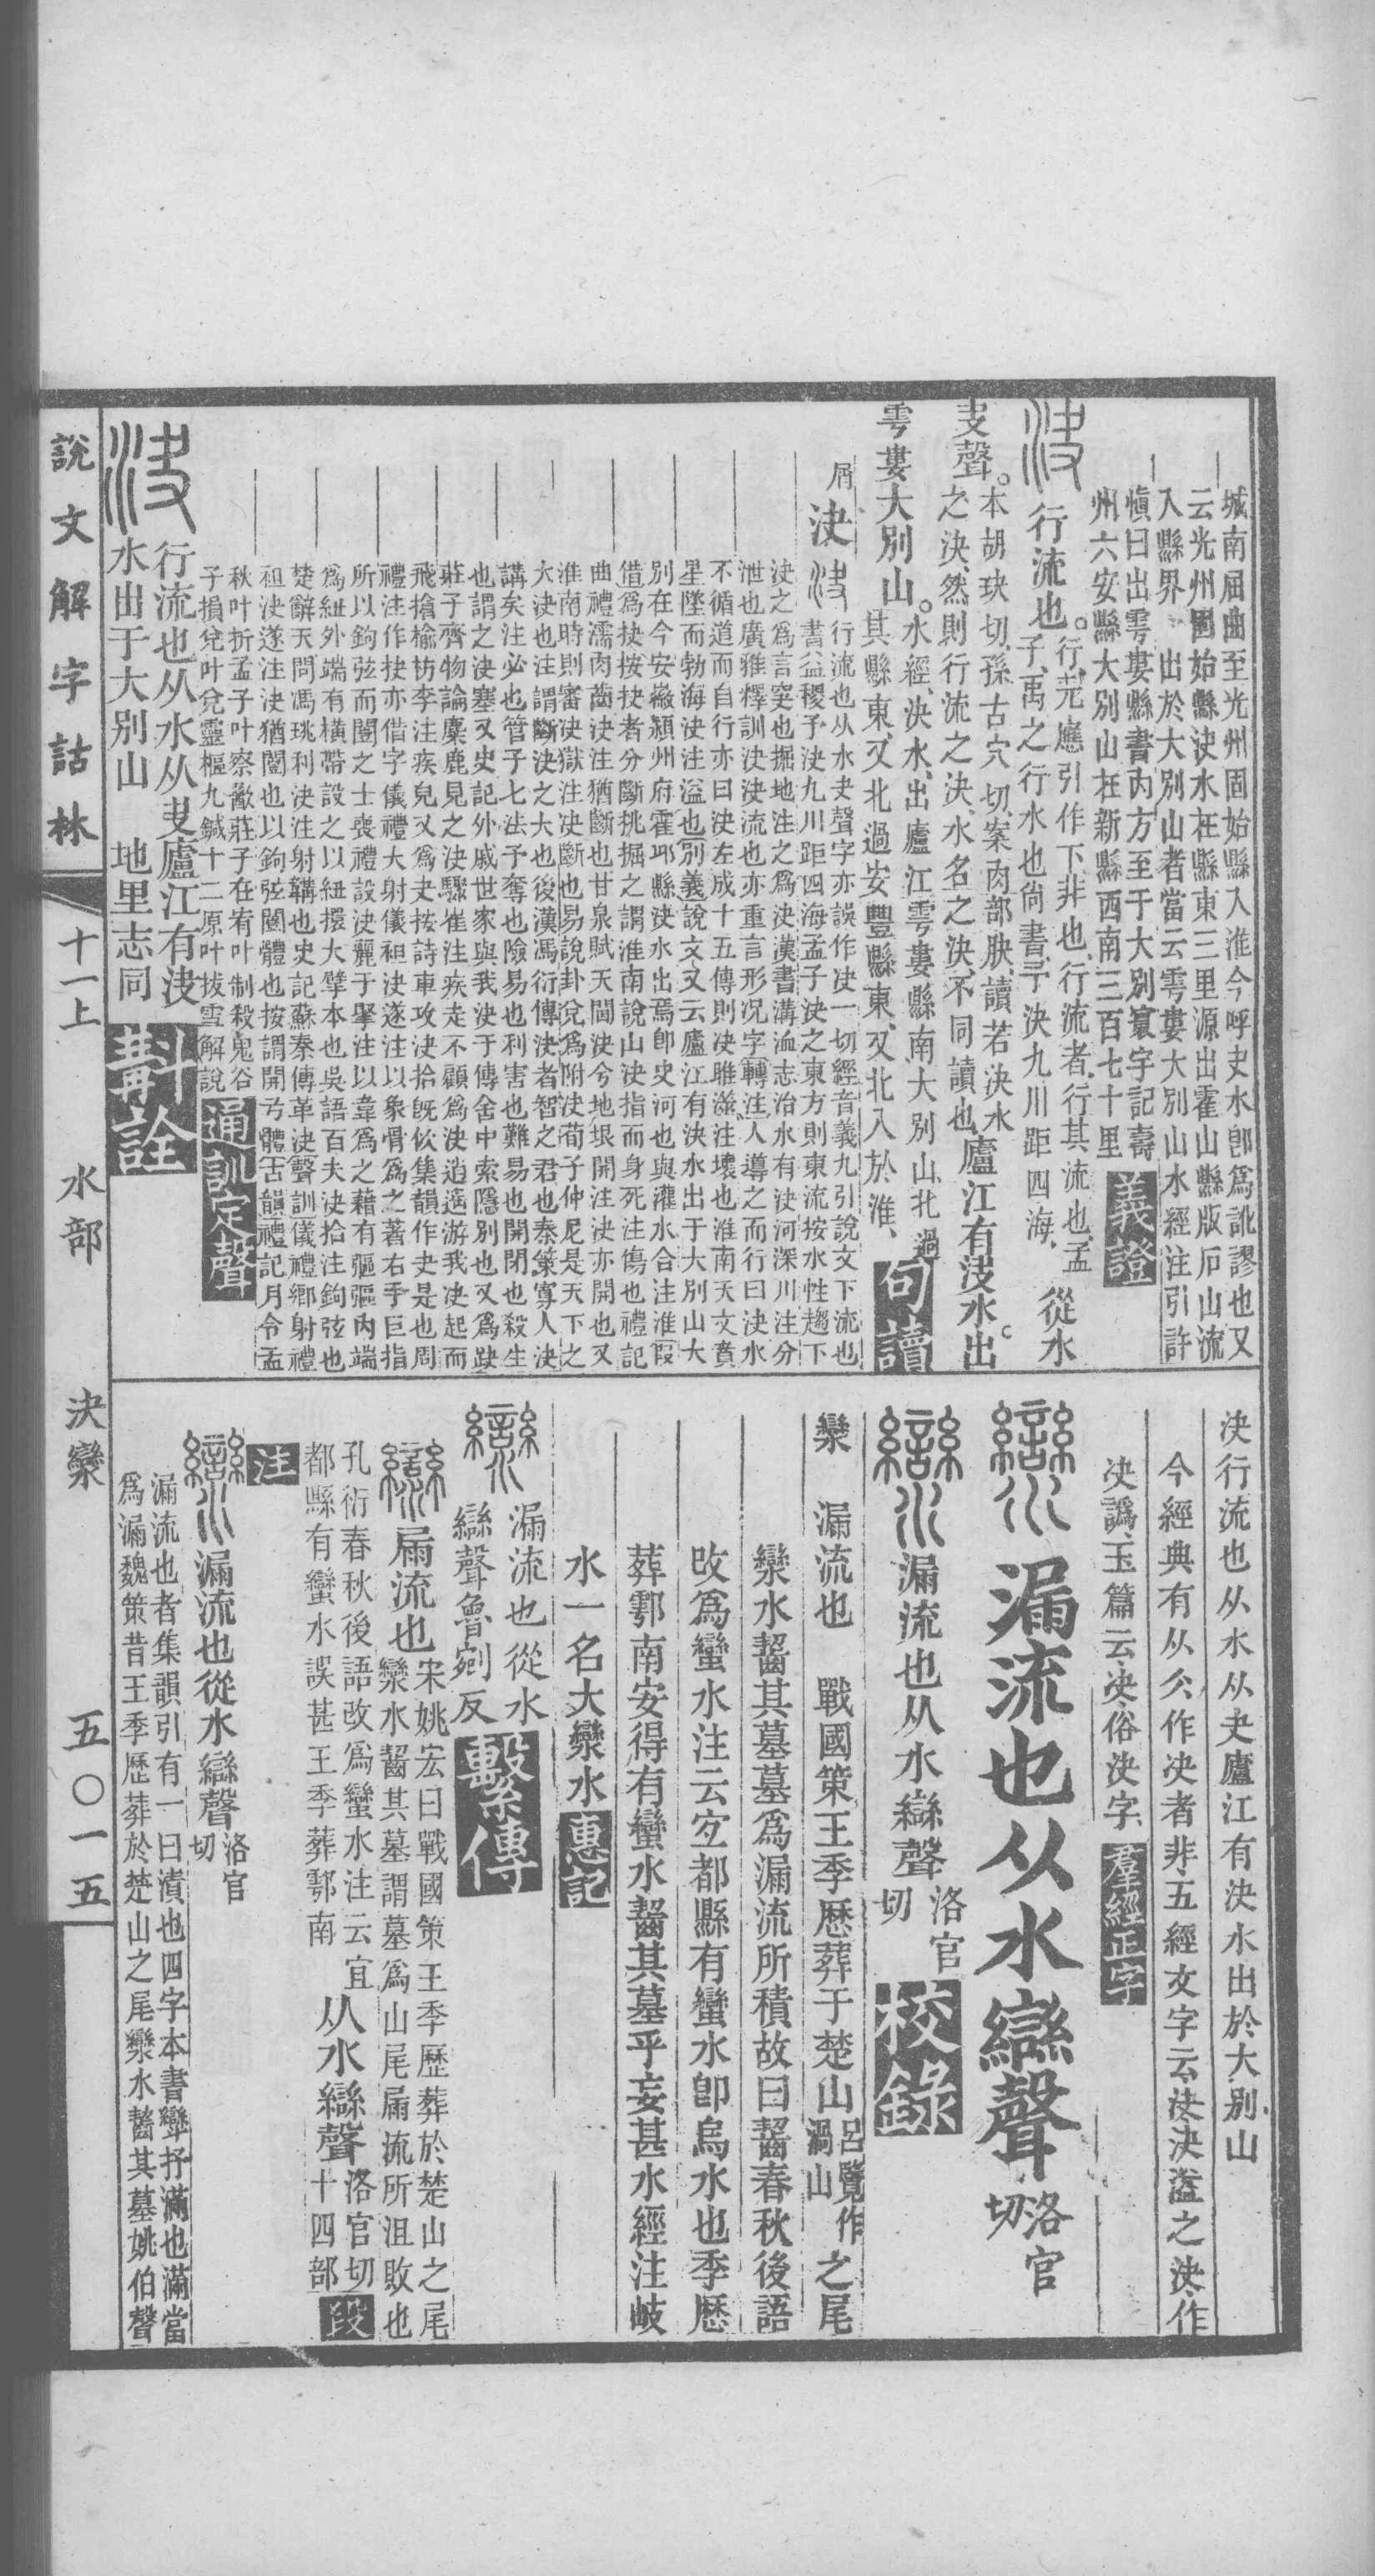 城南屈曲至光州固始縣入淮今呼史水卽爲訛謬也又
云光州固始縣決水在縣東三里源出霍山縣版石山流
入縣界 出於大別山者當云雩婁大別山水經注引許
愼曰出雩婁縣書內方至于大別寰宇記壽
州六安縣大別山在新縣西南三百七十里 義證
行流也。行、元應引作下、非也、行流者、行其流也、孟
子、禹之行水也、尙書、予決九川距四海、從水
夬聲。本胡玦切、孫古穴切、案肉部肤、讀若決水
之決、然則行流之決、水名之決、不同讀也、廬江有決水。出
雩婁大別山。水經、決水、出廬江雩婁縣南大別山、北過
其縣東、又北過安豐縣東、又北入於淮、 句讀
屑 決 行流也从水夬聲字亦誤作决一切經音義九引說文下流也
書益稷予決九川距四海孟子決之東方則東流按水性趨下
決之爲言突也掘地注之爲決漢書溝洫志治水有決河深川注分
泄也廣雅釋訓決決流也亦重言形况字轉注人導之而行曰決水
不循道而自行亦曰決左成十五傳則決睢澨注壞也淮南天文賁
星墜而勃海決注溢也別義說文又云廬江有決水出于大別山大
別在今安徽潁州府霍邱縣決水出焉卽史河也與灌水合注淮叚
借爲抉按抉者分斷挑掘之謂淮南說山決指而身死注傷也禮記
曲禮濡肉齒決注猶斷也甘泉賦天閫決兮地垠開注決亦開也又
淮南時則審決獄注決斷也易說卦兌爲附決荀子仲尼是天下之
大決也注謂斷決之大也後漢馮衍傳決者智之君也秦策寡人決
講矣注必也管子七法予奪也險易也利害也難易也開閉也殺生
也謂之決塞又史記外戚世家與我決于傳舍中索隱別也又爲趹
莊子齊物論麋鹿見之決驟崔注疾走不顧爲決逍遙游我決起而
飛搶榆枋李注疾皃又爲夬按詩車攻決拾旣佽集韻作夬是也周
禮注作抉亦借字儀禮大射儀袒決遂注以象骨爲之著右手巨指
所以鉤弦而闓之士喪禮設決麗于掔注以韋爲之藉有彄彄內端
爲紐外端有橫帶設之以紐擐大擘本也吳語百夫決拾注鉤弦也
楚辭天問馮珧利決注射韝也史記蘇秦傳革決聲訓儀禮鄉射禮
袒決遂注決猶闓也以鉤弦闓體也按謂開弓體古韻禮記月令孟
秋叶折孟子叶察歠莊子在宥叶制殺鬼谷
子損兌叶兌靈樞九鍼十二原叶拔雪解說 通訓定聲
行流也从水从夬廬江有決
水出于大別山 地里志同 斠詮
決行流也从水从夬廬江有決水出於大別山
今經典有从仌作决者非五經文字云決决溢之決作
决譌玉篇云决俗決字 羣經正字
灓 漏流也从水䜌聲 洛官切
漏流也从水䜌聲 洛官切 校錄
灓 漏流也 戰國策王季歷葬于楚山 呂覽作渦山 之尾
灓水齧其墓墓爲漏流所積故曰齧春秋後語
改爲蠻水注云宜都縣有蠻水卽烏水也季歷
葬鄠南安得有蠻水齧其墓乎妄甚水經注岐
水一名大灓水 惠記
漏流也從水
䜌聲魯剜反 繫傳
屚流也 宋姚宏曰戰國策王季歷葬於楚山之尾
灓水齧其墓謂墓爲山尾屚流所沮敗也
孔衍春秋後語改爲蠻水注云宜
都縣有蠻水誤甚王季葬鄠南 从水䜌聲 洛官切十四部 段
注
漏流也從水䜌聲 洛官切
漏流也者集韻引有一曰漬也四字本書㪻抒滿也滿當
爲漏魏策昔王季歷葬於楚山之尾灓水齧其墓姚伯聲
說文解字詁林 十一上 水部 決灓 五〇一五